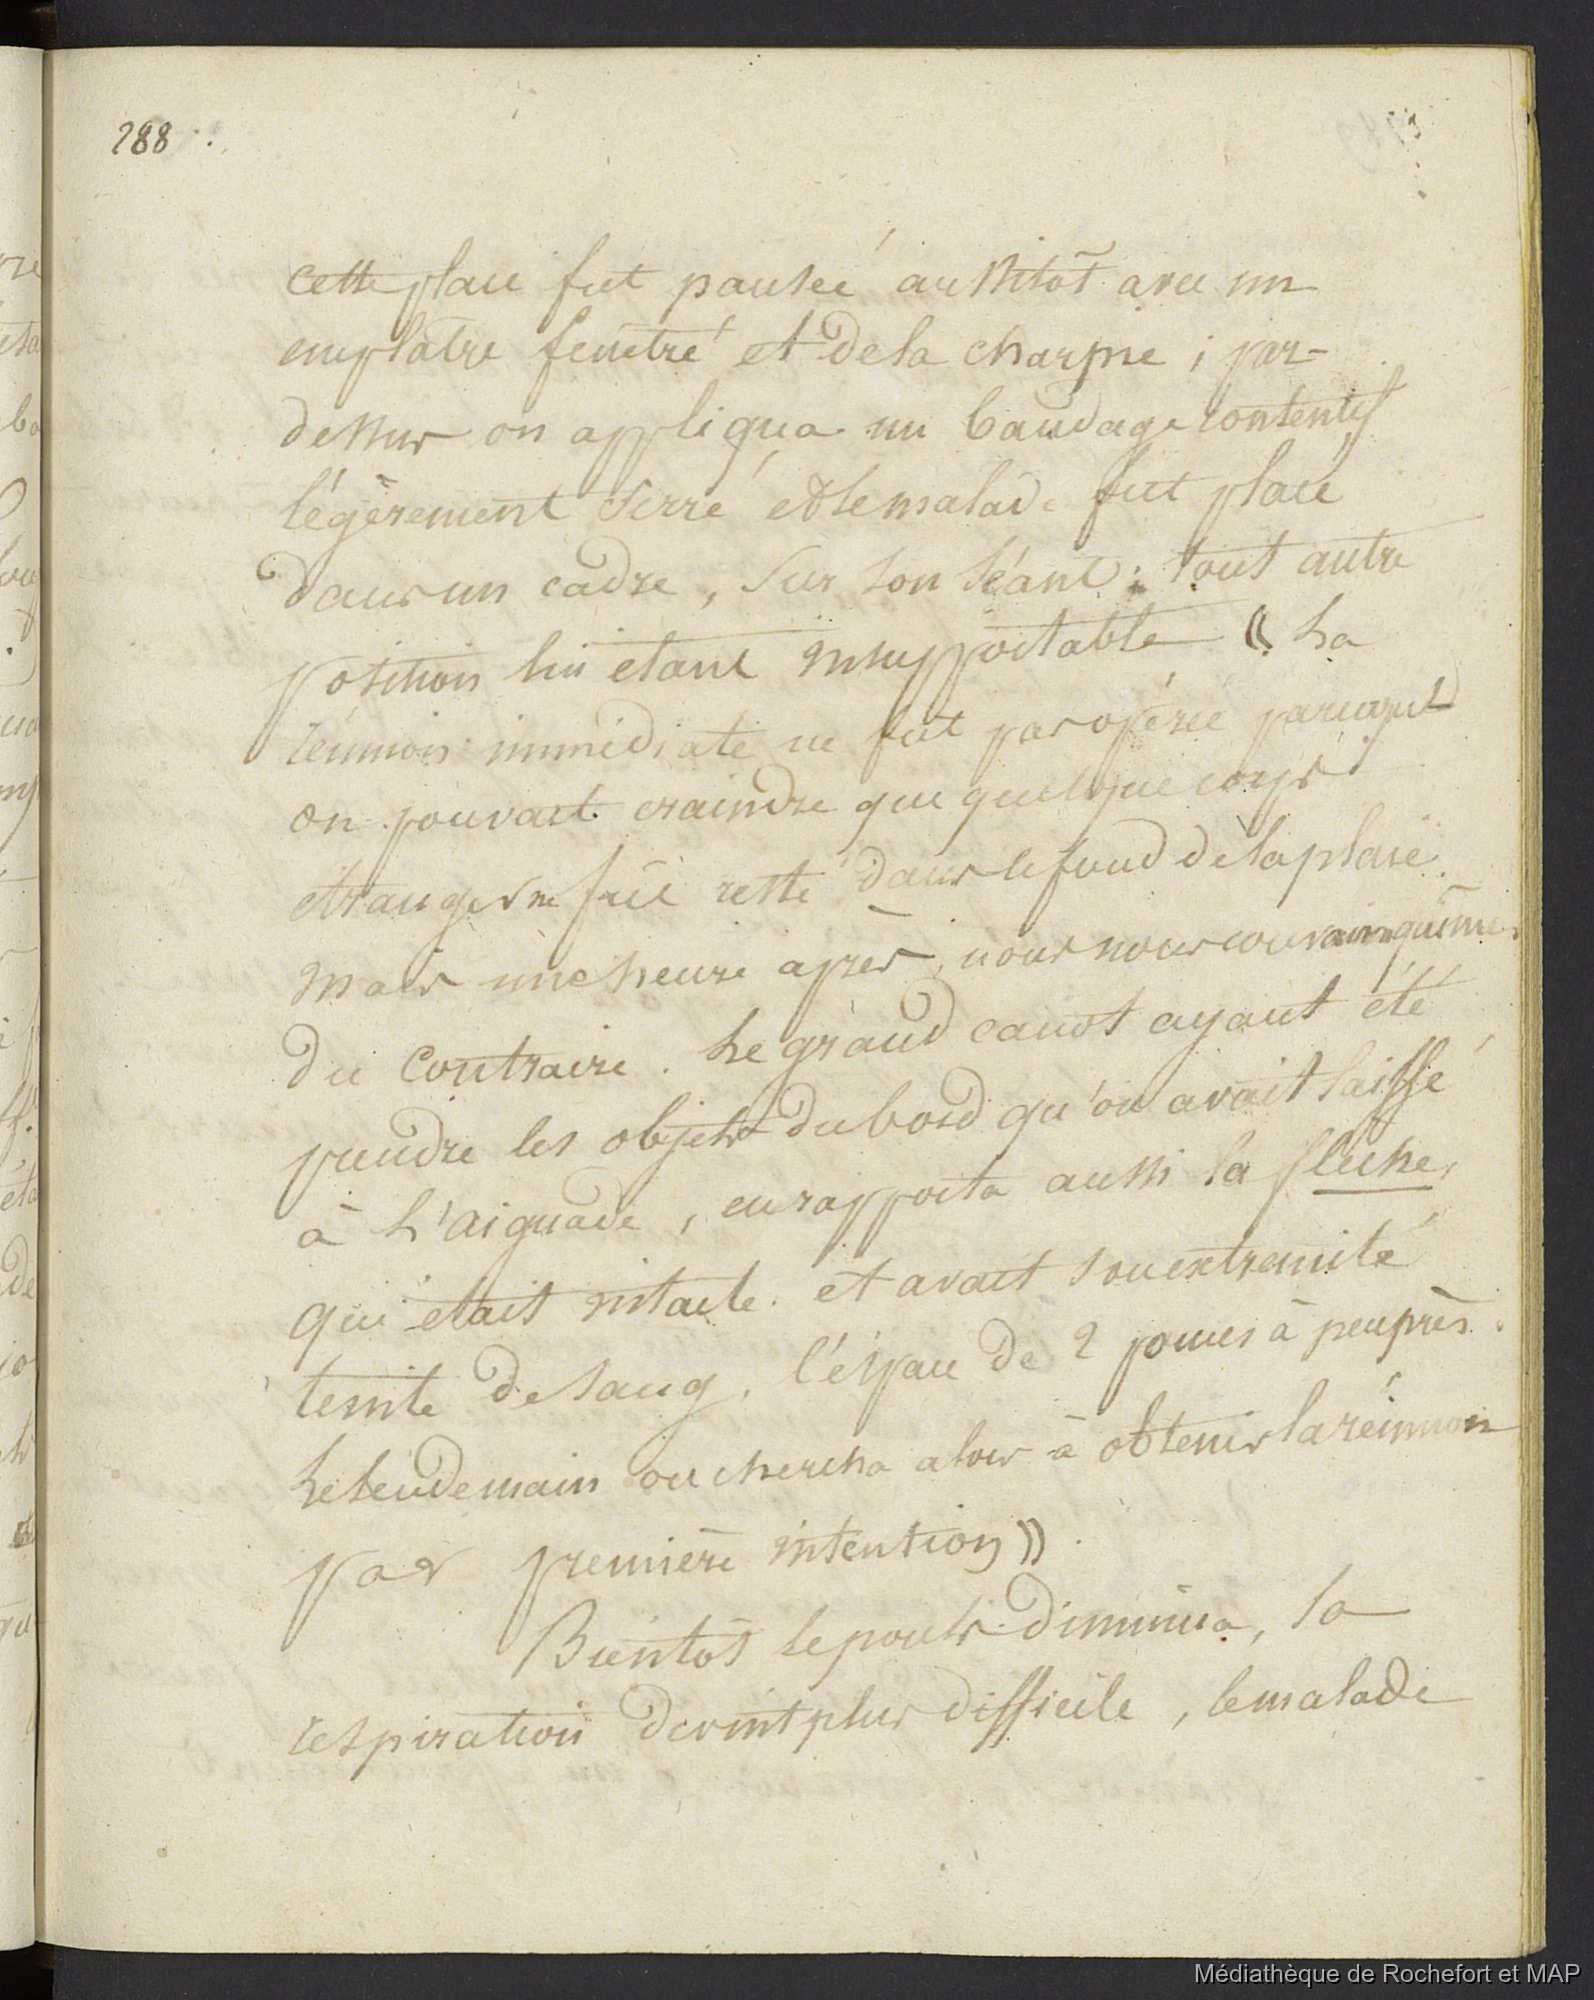 288
cette plaie fut pansée aussitôt avec un
emplâtre fenêtré et de la charpie ; par-
dessus on appliqua un bandage contentif
légèrement serré et le malade fut placé
dans un cadre, sur son séant ; tout autre
position lui étant insupportable (( La
réunion immédiate ne fut pas opérée parceque
on pouvait craindre que quelque corps
étranger ne fût resté dans le fond de la plaie.
Mais une heure après, nous nous convainquimes
du contraire. Le grand canot ayant été
prendre les objets du bord qu'on avait laissé
à L'aiguade, en rapporta aussi la flèche,
qui était intacte. et avait son extremité
teinte de sang, l'éspace de 2 pouces à peuprès.
Le lendemain on chercha alors à obtenir la réunion
par première intention )).
Bientôt le pouls diminua, la
respiration devint plus difficile, le malade
Médiathèque de Rochefort et MAP